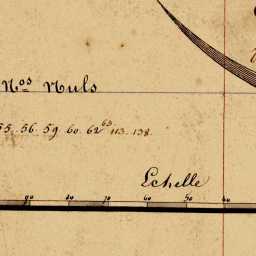 Nos Nuls
55. 56. 59. 60. 62 63 113. 138.
Echelle
90 80 70 60 50 40